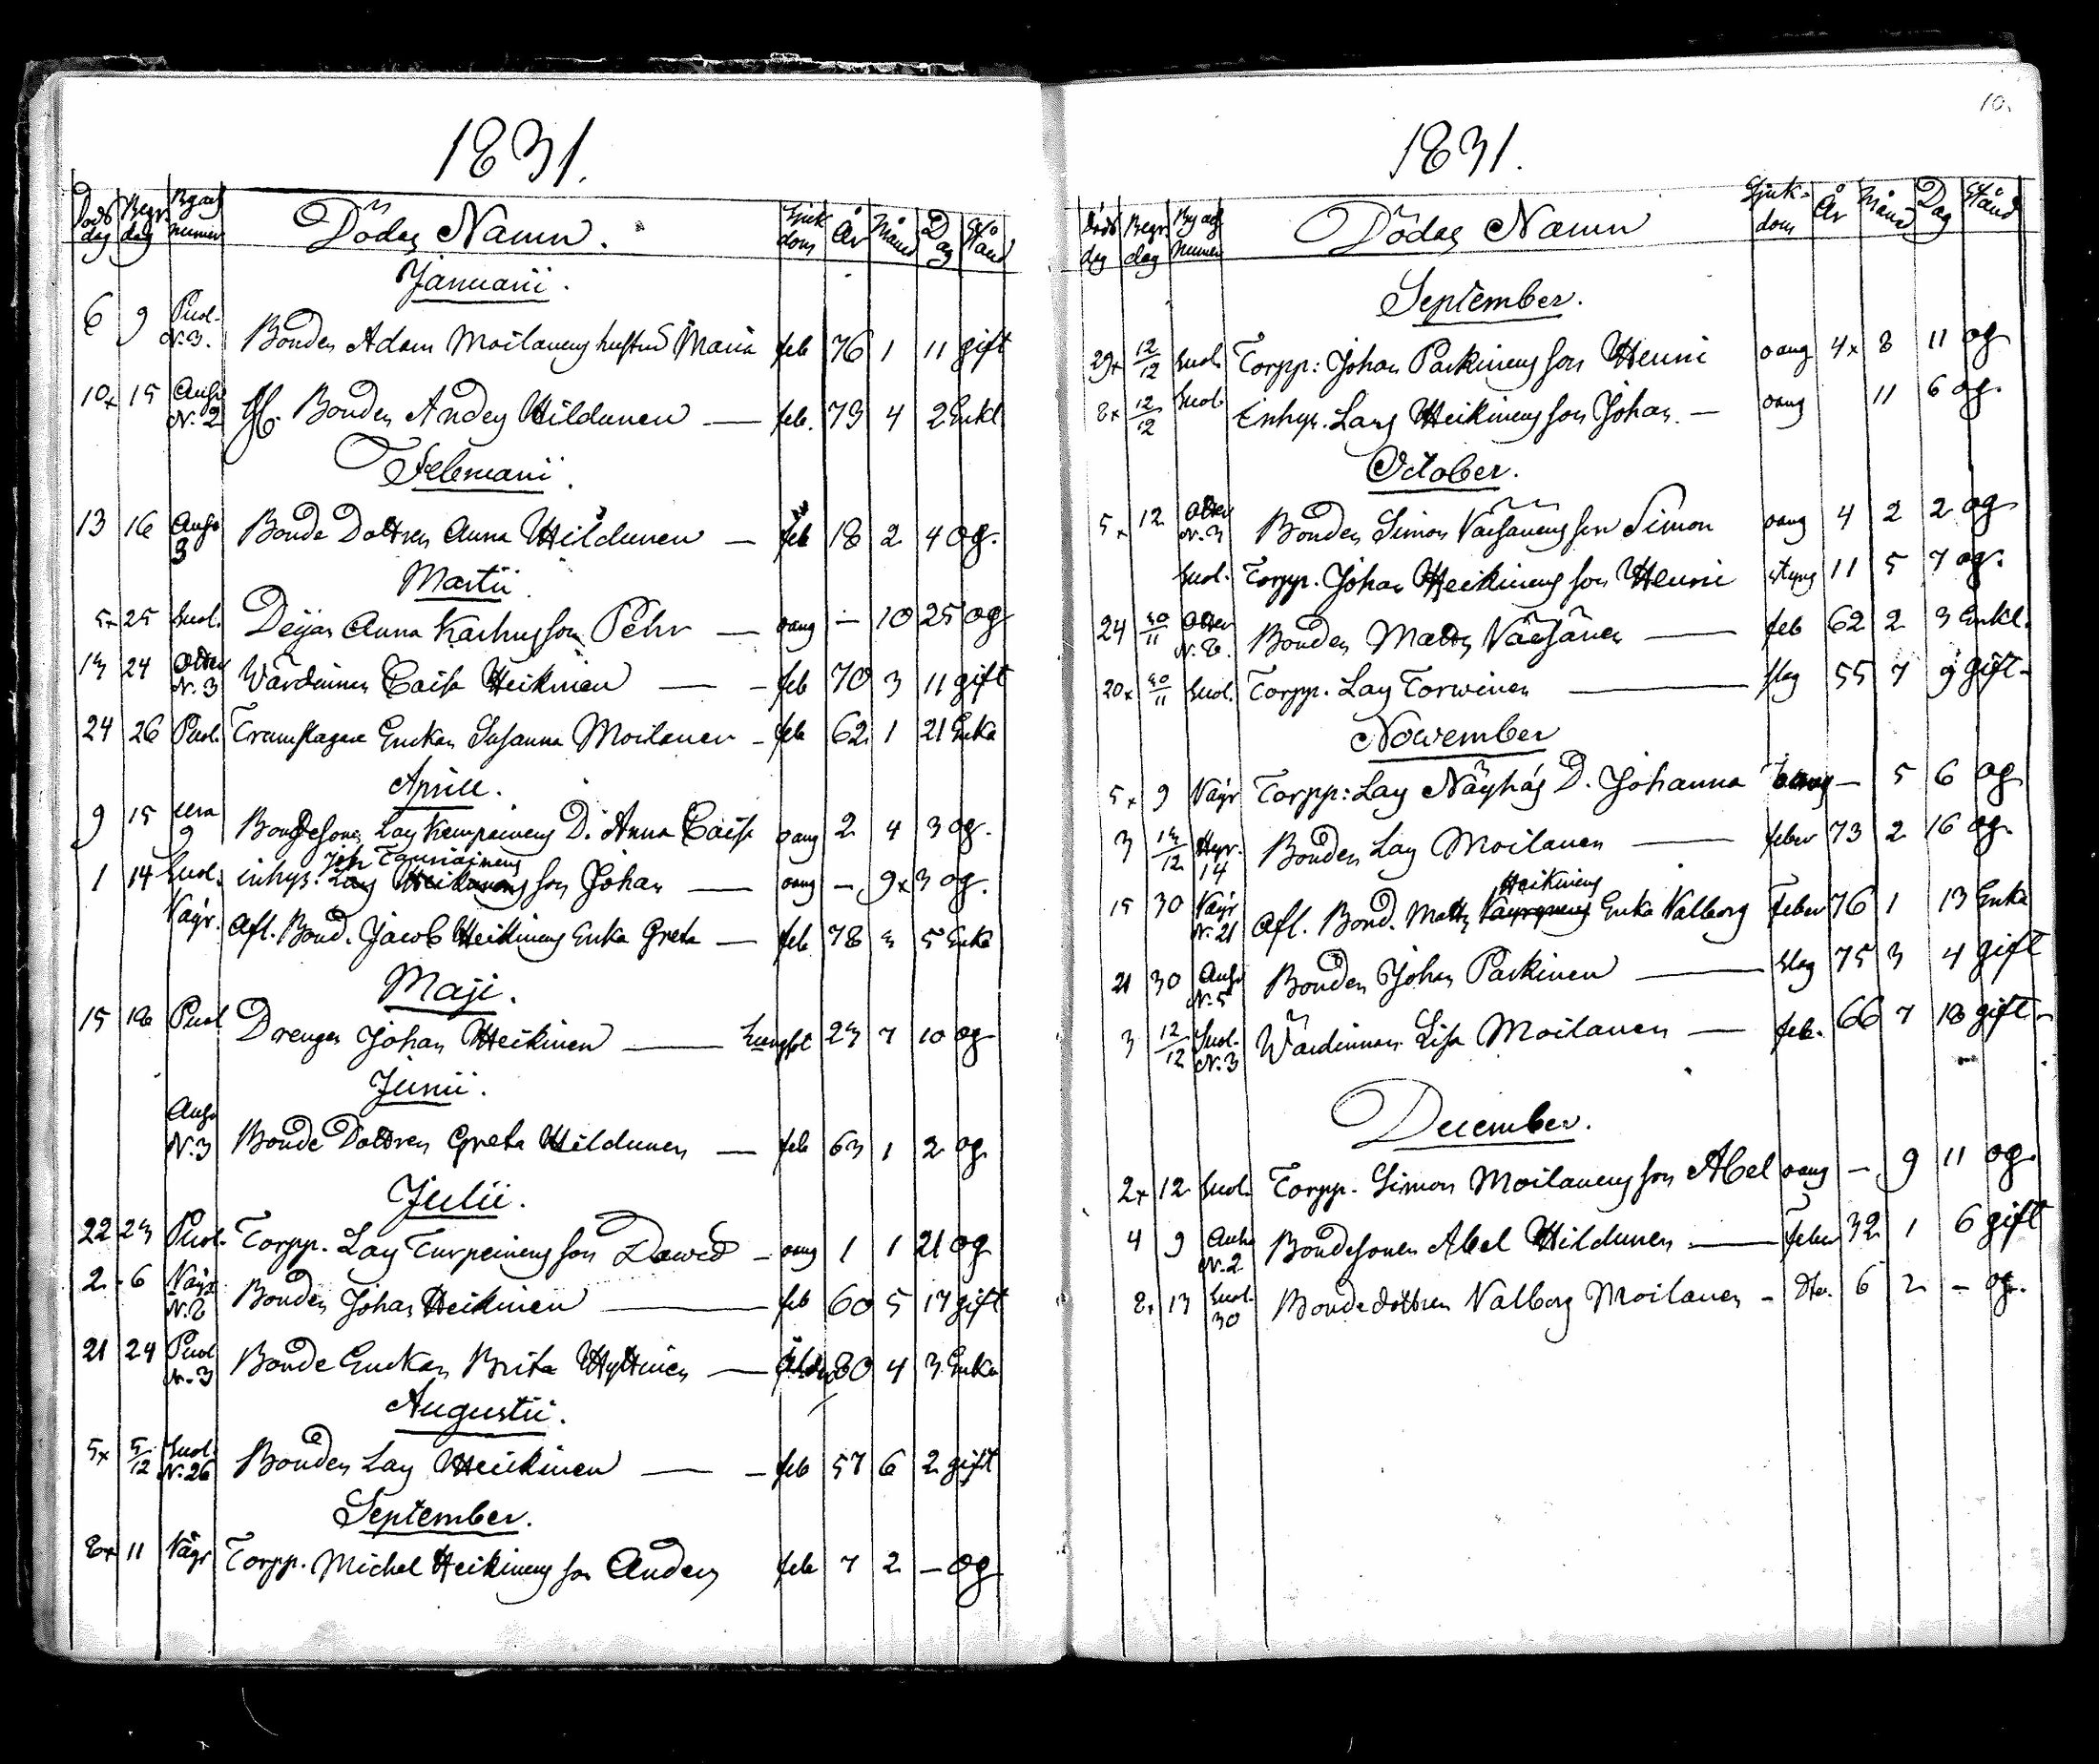 1831.
Döds dag Begr. dag Byars numer Dödas Namn. Sjuk dom År Månd Dag Stånd
Januarii.
6 9 Puol. N:3. Bonden Adam Moilanens hustru Maria feb 76 1 11 gift
10x 15 N:2 Bonden Anders Hildunen — feb. 73 4 2 Enkl
Februarii.
13 16 3 Bonde Dottren Anna Hildunen — feb 18 2 4 og.
Martii
5x 25 Suol. Anna Karhus son Pehr — oang — 10 25 og
13 24 N:3 Wärdinnan Caisa Heikinen — feb 70 3 11 gift
24 26 Puol. Trumslagare Enckan Susanna Moilanen — feb 62 1 21 Enka
Aprill.
9 15 9 Bondesonens Lars Kempainens D. Anna Caisa oang 2 4 3 og.
Joh Tauriainens
1 14 Suol. inhys. Lars Heikinens son Johan — oang — 9x 3 og.
Väyr. Afl. Bond. Jacob Heikinens Enka Greta — feb 78 3 5 Enka
Maji.
15 18 Puol Drengen Johan Heikinen — Lungsot 23 7 10 og
Junii.
N:3 Bonde Dottren Greta Hildunen — feb 63 1 2 og
Julii.
22 23 Puol. Torpp. Lars Turpeinens son David — oang 1 1 21 og
2 6 Väyr N:8 Bonden Johan Heikinen — feb 60 5 17 gift
21 24 Puol N:3 Bonde Enckan Brita Hyttinen — ålder 80 4 3 Enka
Augustii.
5x 5/12 Suol. N:26 Bonden Lars Heikinen — feb 57 6 2 gift
September.
8x 11 Väyr Torpp. Michel Heikinens son Anders feb 7 2 — og
10.
1831.
Döds dag Begr. dag Byars Numer Dödas Namn Sjuk- dom År Månd Dag Stånd
September.
29x 12/12 Suol. Torpp: Johan Parkinens son Henric oang 4x 8 11 og
8x 12/12 Suol Inhys. Lars Heikinens son Johan. — oang 11 6 og.
October.
5x 12 N:3 Bonden Simon Väisänens son Simon oang 4 2 2 og
Suol. Torpp. Johan Heikinens son Henric styng 11 5 7 og.
24 20/11 N:8. Bonden Matts Väisänen — feb 62 2 3 Enkl.
20x 20/11 Suol. Torpp. Lars Torwinen — slag 55 7 9 gift
November
5x 9 Väyr Torpp: Lars Näyhäs D. Johanna oang — 5 6 og
3 13/12 Hyr. 14 Bonden Lars Moilanen — feber 73 2 16 og.
Heikinens
15 30 Väyr N:21 Afl. Bond. Matts Väyrynens Enka Valborg Feber 76 1 13 Enka
21 30 N:5 Bonden Johan Parkinen — slag 75 3 4 gift
3 12/12 Suol. N:3 Wärdinnan Lisa Moilanen — feb. 66 7 18 gift
December.
2x 12 Suol. Torpp. Simon Moilanens son Abel oang — 9 11 og.
4 9 N:2 Bondesonen Abel Hildunen — feber 32 1 6 gift
8x 13 Suol. 30 Bondedottren Valborg Moilanen — Dto. 6 2 — og.